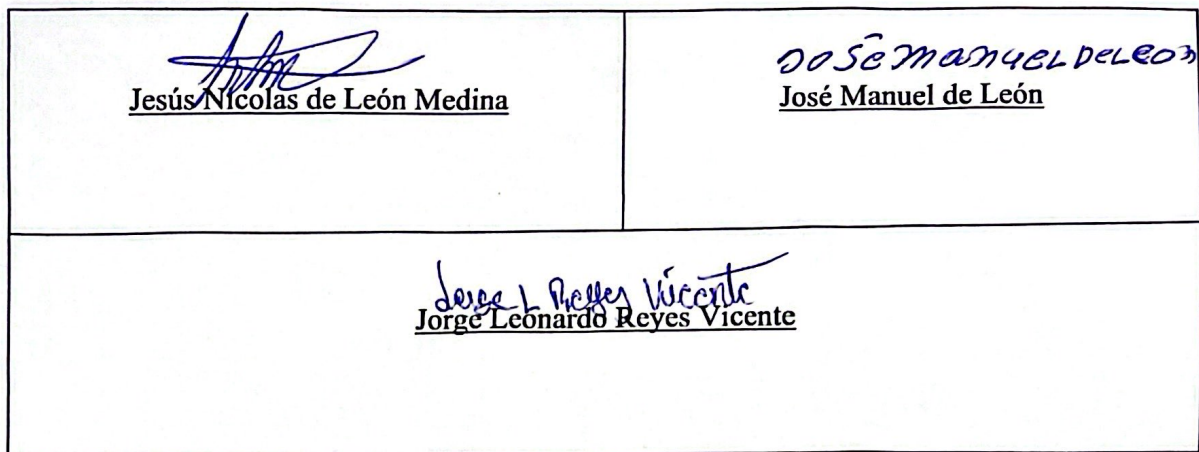 Jesús Nicolas de León Medina
José manuel DeLeon
José Manuel de León
Jorge L Reyes Vicente
Jorge Leonardo Reyes Vicente